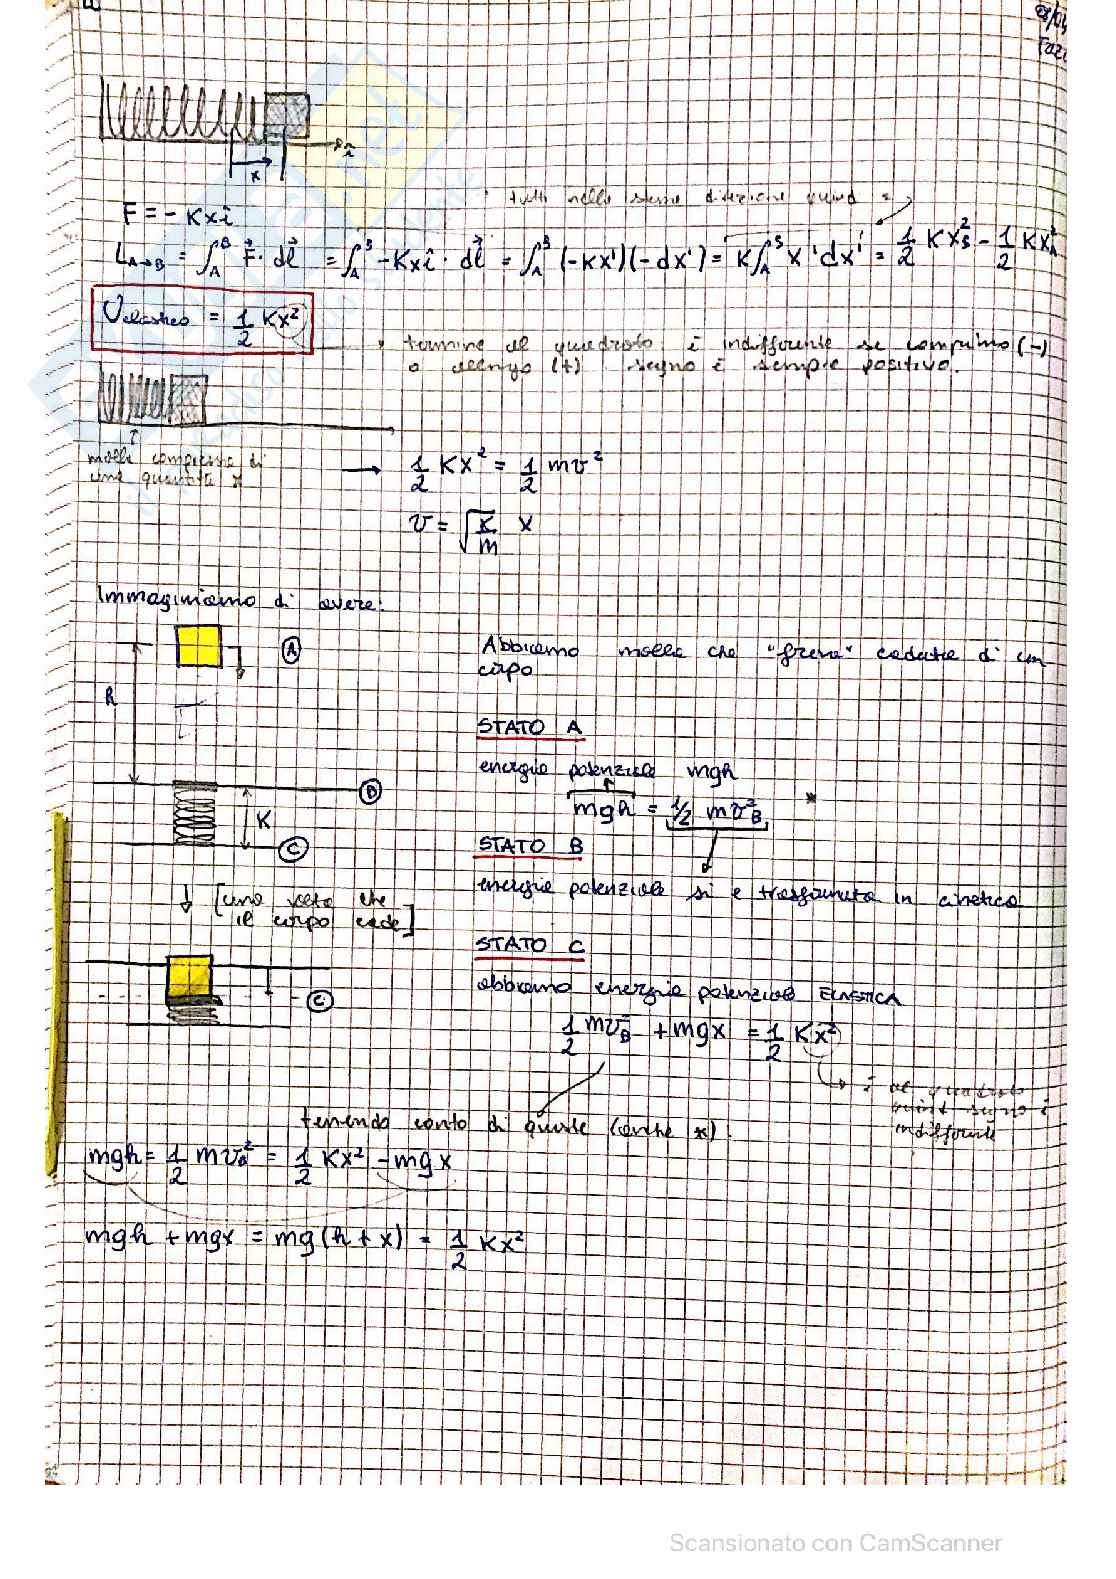 x
î
F = - Kxî
tutti nelle stesse direzione quind
L_{A→B} = ∫_A^B F⃗ · dl⃗ = ∫_A^B -Kxî · dl⃗ = ∫_A^B (-Kx')(-dx') = K∫_A^B x'dx' = 1/2 Kx_B^2 - 1/2 Kx_A^2
U elastico = 1/2 Kx²
termine al quadrato è indifferente se comprimo (-)
o allungo (+) segno è sempre positivo.
molla compressa di
una quantità x
→ 1/2 Kx² = 1/2 mv²
v = √(K/m) x
Immaginiamo di avere:
A
h
B
K
C
↓ [una volta che
il corpo cade]
C
Abbiamo molla che "frena" caduta di un
corpo
STATO A
energia potenziale mgh
mgh = 1/2 mv_B^2 *
STATO B
energia potenziale si è trasformata in cinetica
STATO C
abbiamo energia potenziale ELASTICA
1/2 mv_B^2 + mgx = 1/2 Kx²
è al quadrato
quindi segno è
indifferente
tenendo conto di queste (anche *).
mgh = 1/2 mv_B^2 = 1/2 Kx² - mgx
mgh + mgx = mg(h + x) = 1/2 Kx²
Scansionato con CamScanner